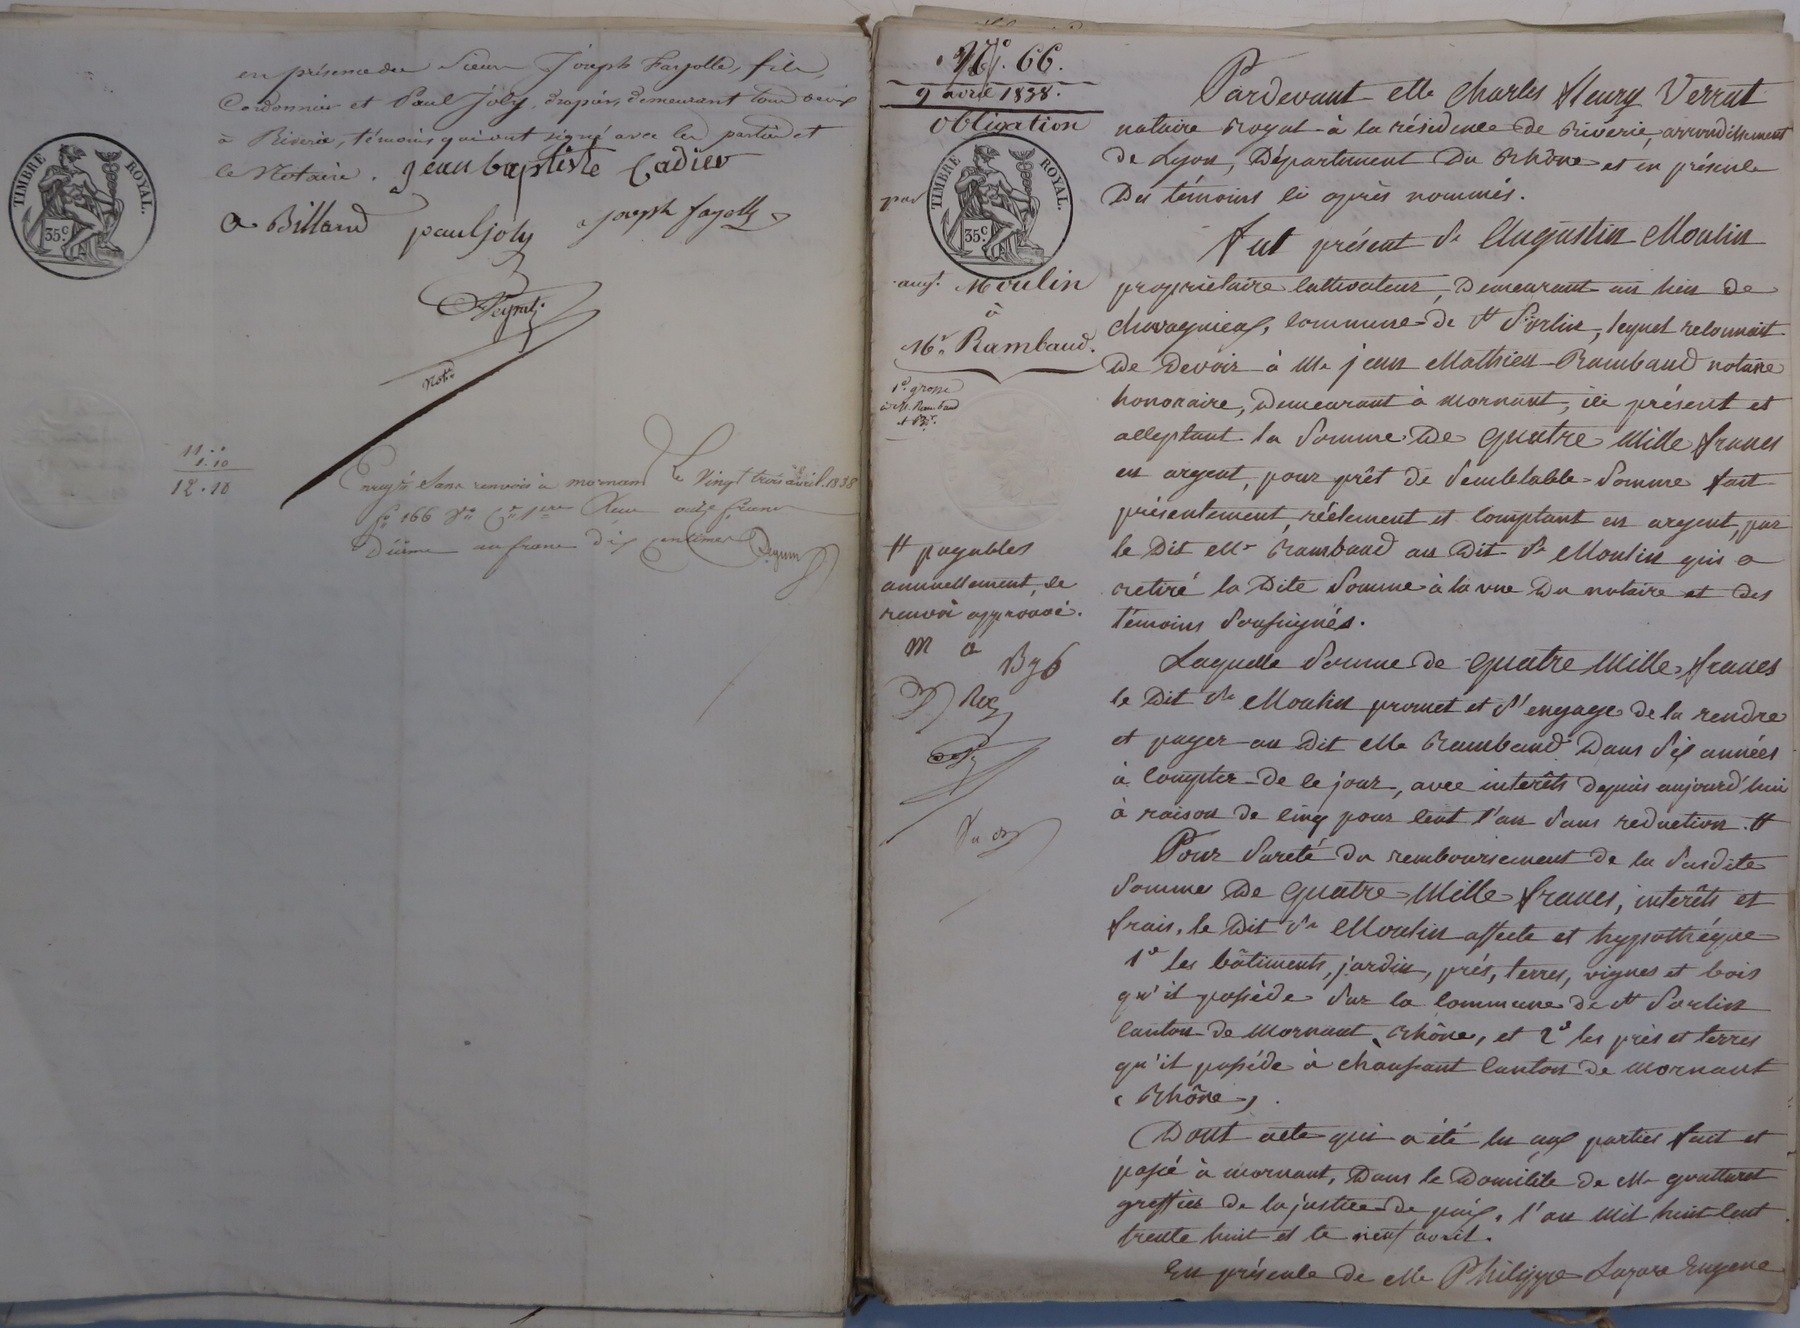 en présence du Sieur Joseph Fayolle, fils,
Cordonnier et Paul Joly, drapier, demeurant tous deux
à Riverie, témoins qui ont signé avec les parties et
le Notaire. jean baptiste Cadier
a Billard paul joly joseph fayolle
TIMBRE ROYAL.
35c
Notre
11 . "
1.10
12.10
Enregtré Sans renvoi à mornant Le Vingt trois avril 1838
fo 166 Vo Cse 1ere Reçu onze francs
Décime un franc dix Centimes
No. 66.
9 avril 1838.
Obligation
TIMBRE ROYAL.
35c
par
aug. Moulin
à
Mr. Rambaud.
1e. grosse
à M. Rambaud
# payables
annuellement, le
renvoi approuvé.
m a
Pardevant Me Charles fleury Verrat
notaire Royal à la résidence de Riverie, arrondissement
de Lyon, Département du Rhône et en présence
Des témoins ci après nommés.
fut présent Sr Augustin Moulin
propriétaire cultivateur, Demeurant au lieu de
chavagnieux, commune de St Sorlin, lequel reconnait
De Devoir à Me jean Mathieu Rambaud notaire
honoraire, Demeurant à mornant, ici présent et
acceptant la Somme De quatre Mille francs
en argent, pour prêt de Semblable Somme fait
présentement, réélement et comptant en argent, par
le Dit Mr Rambaud au Dit Sr Moulin qui a
retiré la Dite Somme à la vue Du notaire et des
témoins Soussignés.
Laquelle Somme de quatre Mille francs
le Dit Sr Moulin promet et S'engage de la rendre
et payer au Dit Me Rambaud Dans Six années
à compter de ce jour, avec intérêts depuis aujourd'hui
à raison de cinq pour cent l'an Sans reduction. #
Pour Sureté Du remboursement de la Susdite
Somme De quatre Mille francs, intérêts et
frais, le Dit Sr Moulin affecte et hypothéque
1o les bâtiments, jardin, prés, terres, vignes et bois
qu'il possède Sur la commune de St Sorlin
Canton de Mornant, Rhône, et 2o les prés et terres
qu'il posséde à chaussant Canton de mornant
(Rhône).
Dont acte qui a été lu aux parties fait et
passé à mornant, Dans le Domicile de Me goutturet
greffier de la justice de paix, l'an Mil huit cent
trente huit et le neuf avril.
En présence de Me Philippe Lazare Eugene